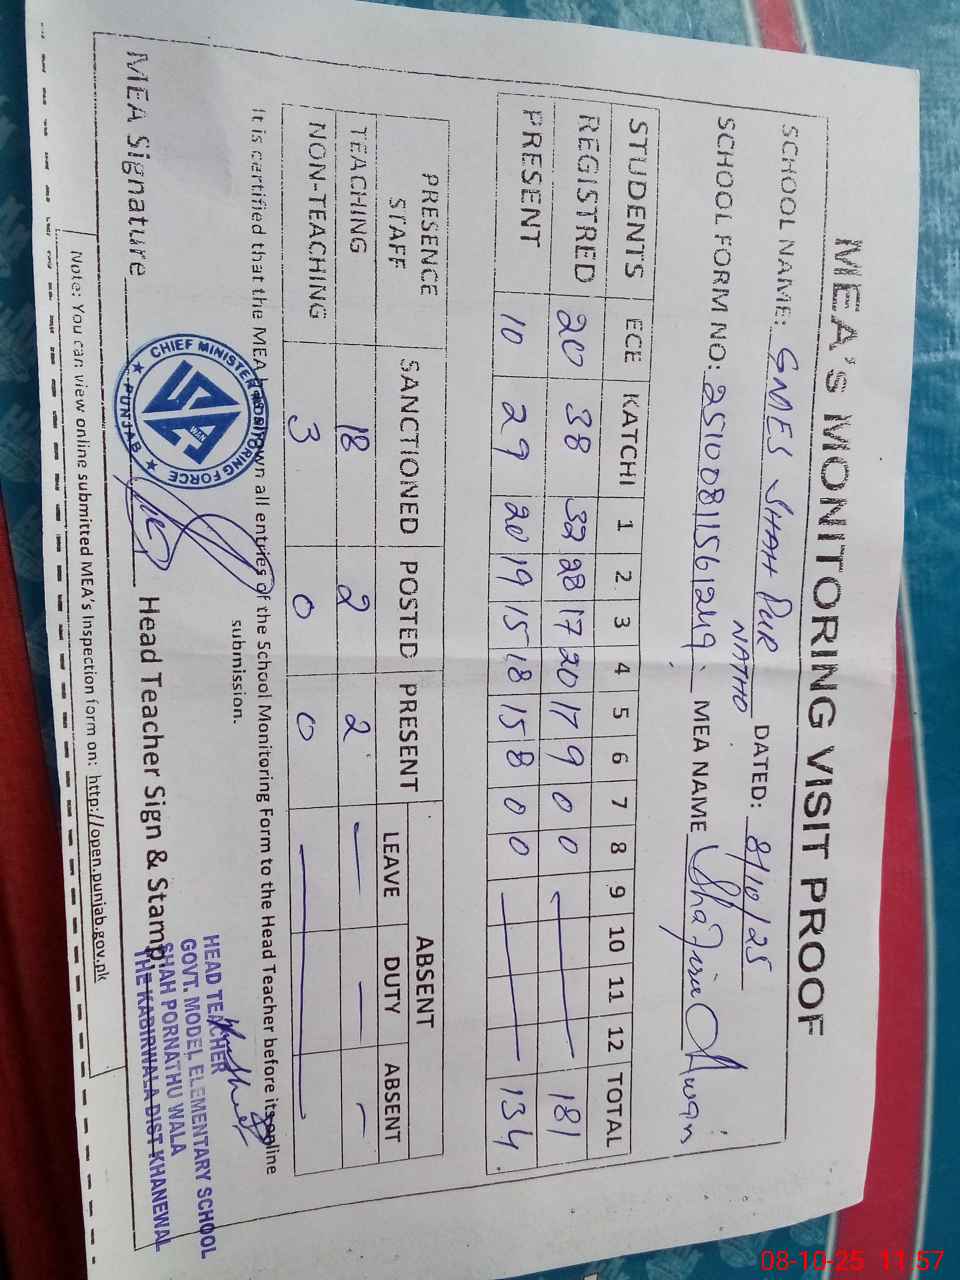 MEA'S MONITORING VISIT PROOF
SCHOOL NAME: GMES SHAH PUR NATHO DATED: 8/10/25
SCHOOL FORM NO: MEA NAME Awan
STUDENTS ECE KATCHI 1 2 3 4 5 6 7 8 9 10 11 12 TOTAL
REGISTRED 20 38 32 28 17 20 17 9 0 0 181
PRESENT 10 29 20 19 15 18 15 8 0 0 134
PRESENCE STAFF SANCTIONED POSTED PRESENT ABSENT
LEAVE DUTY ABSENT
TEACHING 18 2 2 — — —
NON-TEACHING 3 0 0
It is certified that the MEA has shown all entries of the School Monitoring Form to the Head Teacher before its online
submission.
MEA Signature Head Teacher Sign & Stamp
CHIEF MINISTER MONITORING FORCE
PUNJAB
HEAD TEACHER
GOVT. MODEL ELEMENTARY SCHOOL
SHAH PORNATHU WALA
THE KABIRWALA DIST KHANEWAL
Note: You can view online submitted MEA's Inspection form on: http://open.punjab.gov.pk
08-10-25 11:57